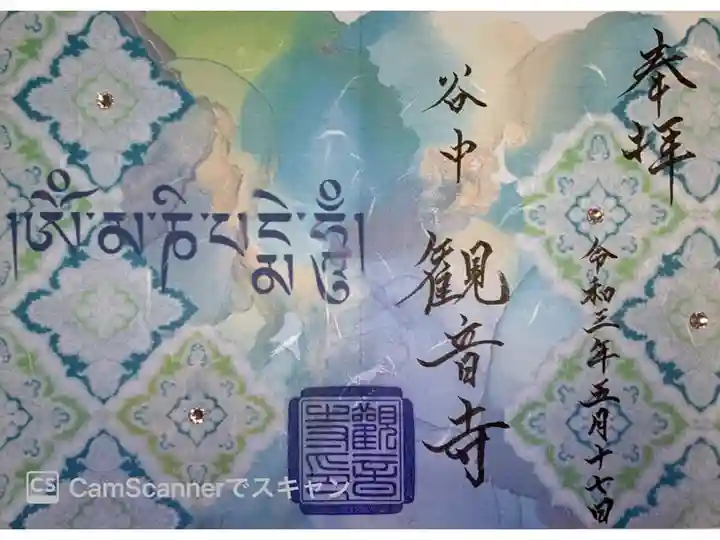 奉拝
令和三年五月十七日
谷中
観音寺
།ༀ་མ་ཎི་པདྨེ་ཧཱུྃ།
觀音
寺印
CS CamScannerでスキャン